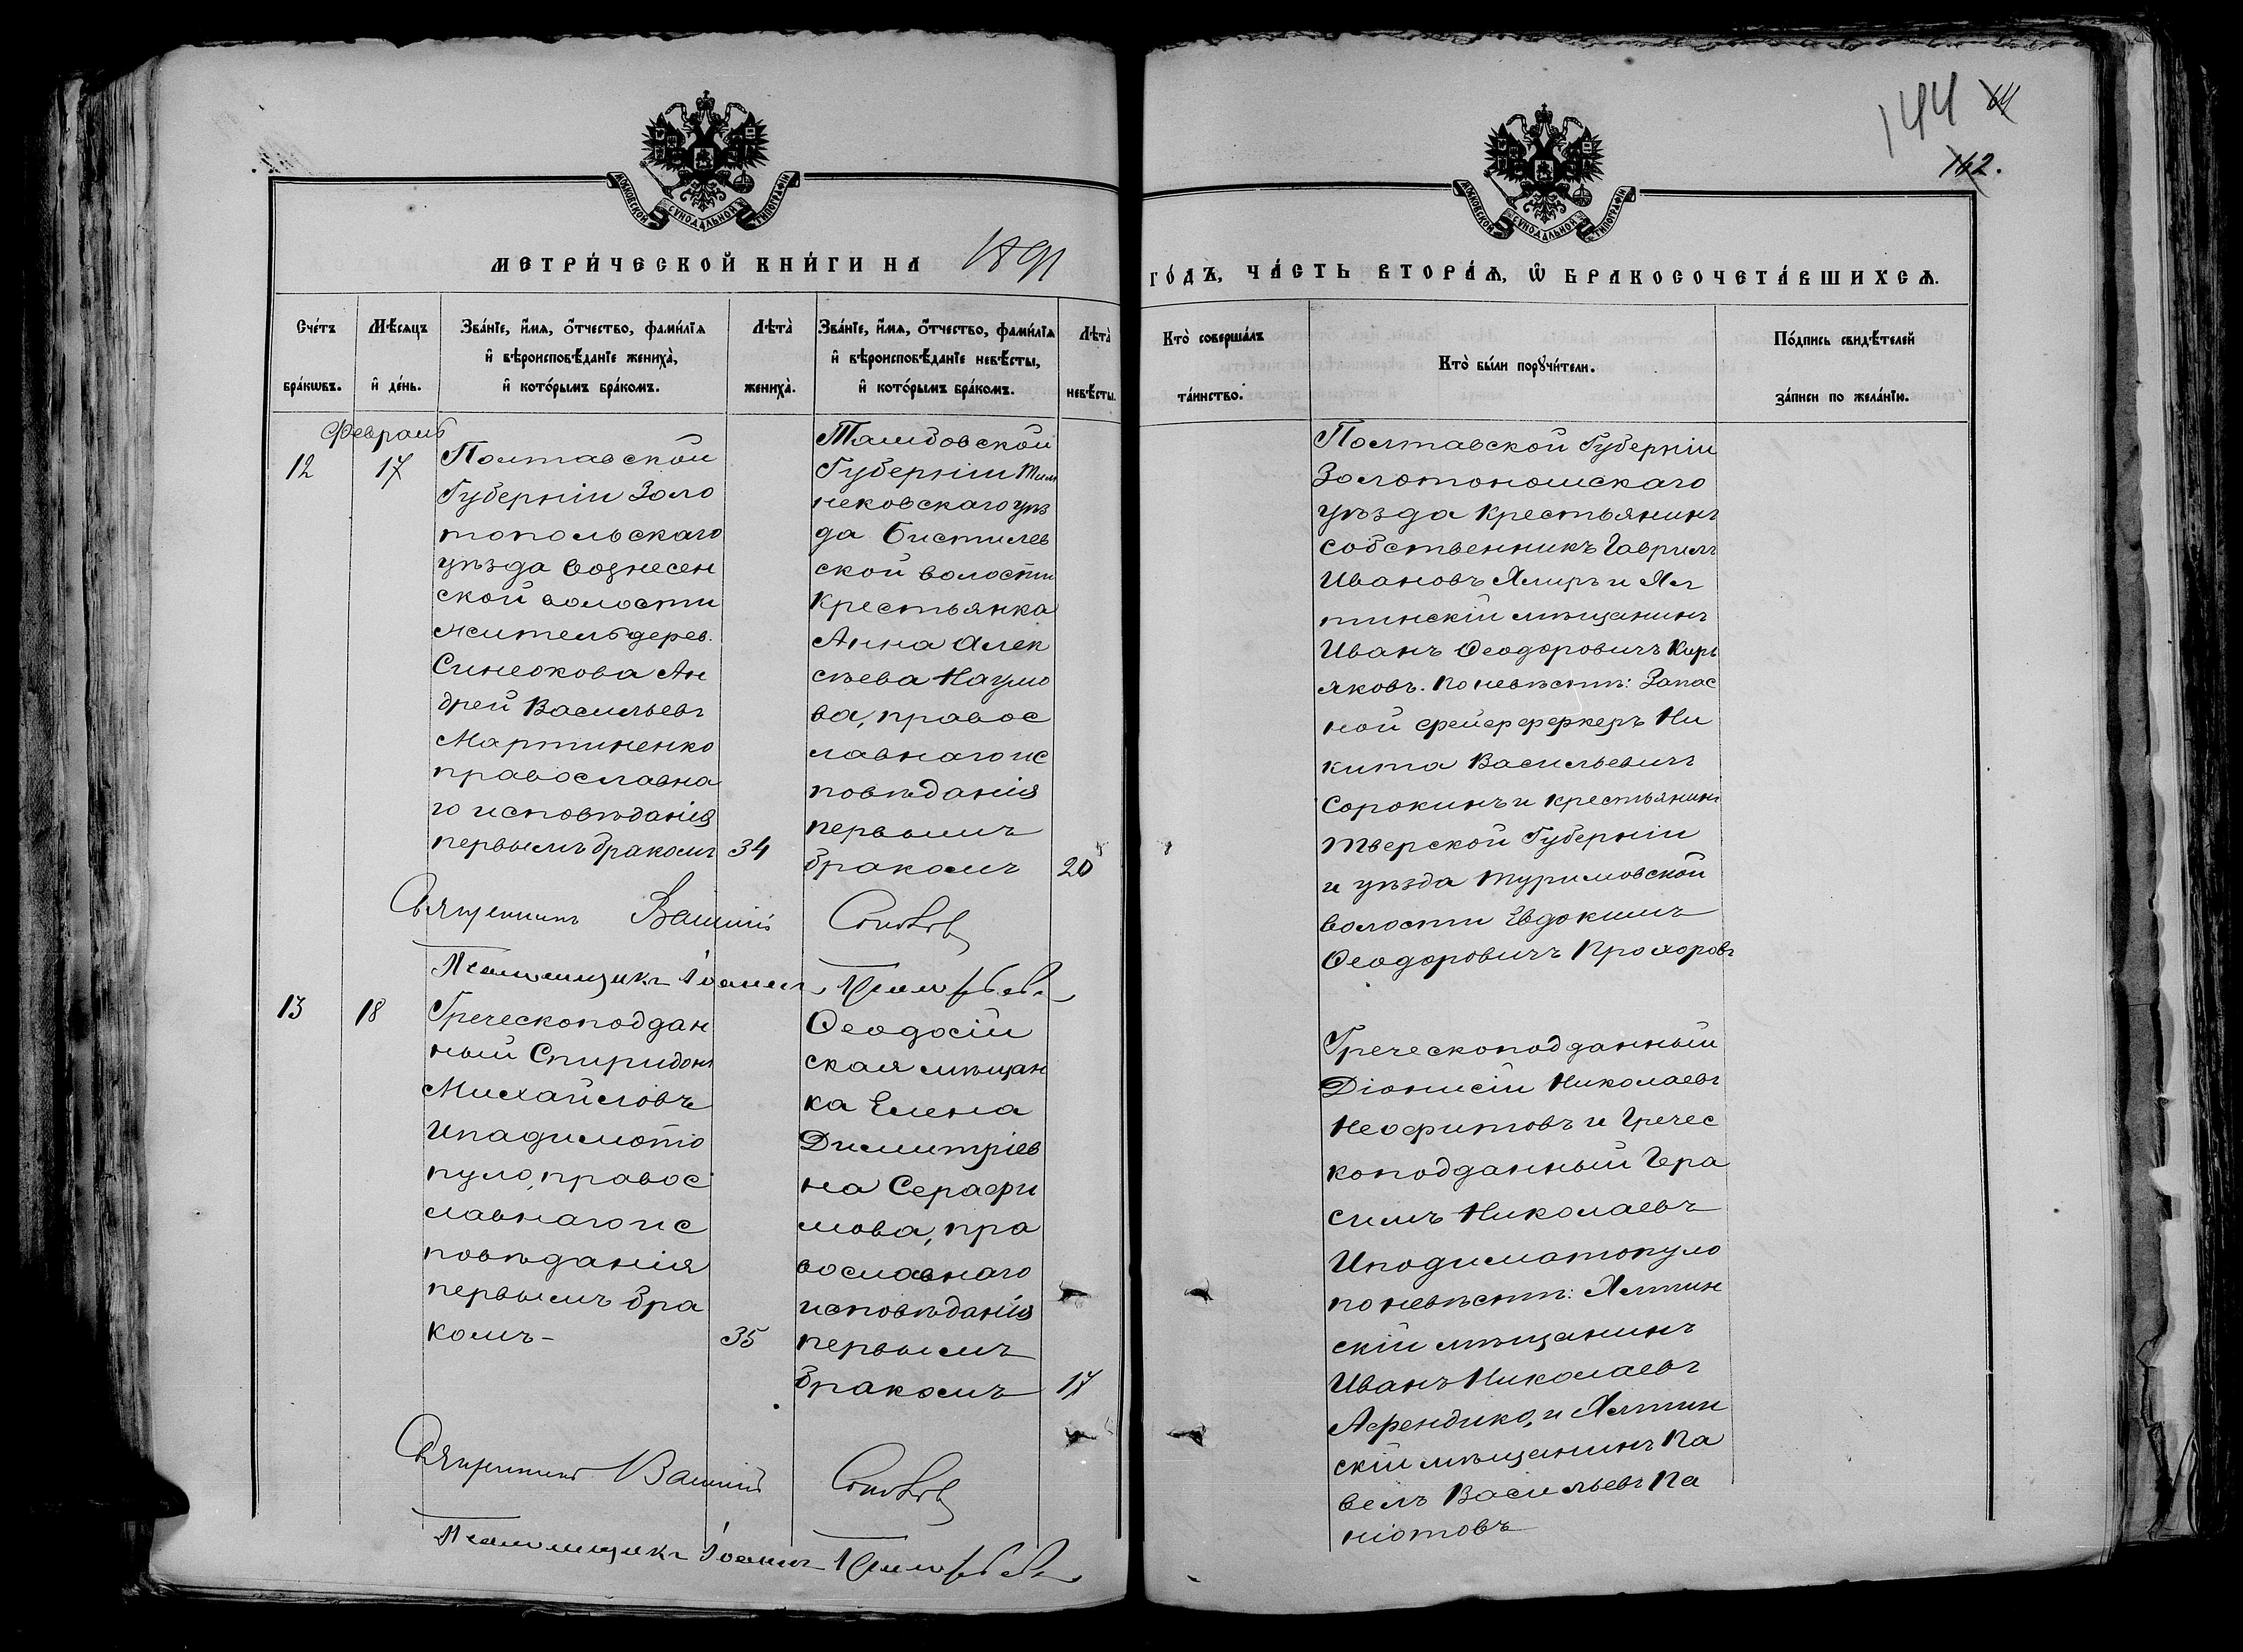 144 64
142.
МОСКОВСКОЙ СѴНОДАЛЬНОЙ ТИПОГРАФІИ
МОСКОВСКОЙ СѴНОДАЛЬНОЙ ТИПОГРАФІИ
МЕТРИ́ЧЕСКОЙ КНИ́ГИ НА 1891
ГО́ДЪ, ЧА́СТЬ ВТОРА́Ѧ, Ѡ҆ БРАКОСОЧЕТА́ВШИХСѦ.
Сче́тъ
бра́кѡвъ.
Мѣ́сѧцъ
и҆ де́нь.
Зва́нїе, и҆́мѧ, ѻ҆́тчество, фами́лїѧ
и҆ вѣроисповѣ́данїе жениха̀,
и҆ кото́рымъ бра́комъ.
Лѣта̀
жениха̀.
Зва́нїе, и҆́мѧ, ѻ҆́тчество, фами́лїѧ
и҆ вѣроисповѣ́данїе невѣ́сты,
и҆ кото́рымъ бра́комъ.
Лѣта̀
невѣ́сты.
Кто̀ соверша́лъ
та́инство.
Кто̀ бы́ли порꙋчи́тели.
По́дпись свидѣ́телей
за́писи по жела́нїю.
Февраль
12
17
Полтавской
Губерніи Золо
топольскаго
уѣзда Вознесен
ской волости
житель дерев.
Синеокова Ан
дрей Васильевъ
Мартиненко
православна
го исповѣданія
первымъ бракомъ
34
Тамбовской
Губерніи Тем
нековскаго уѣз
да
ской волости
Крестьянка
Анна Алек
сѣева Наумо
ва, правос
лавнаго ис
повѣданія
первымъ
бракомъ
20
Полтавской Губерніи
Золотоношскаго
уѣзда Крестьянинъ
собственникъ Гаврилъ
Ивановъ Ямиръ и Ял
тинскій мѣщанинъ
Иванъ Ѳеодоровичъ Кирь
яковъ. По невѣстѣ: Запас
ной фейерферкеръ Ни
кита Васильевичъ
Сорокинъ и крестьянинъ
Тверской Губерніи
и уѣзда Туримовской
волости Евдокимъ
Ѳеодоровичъ Прохоровъ
Священникъ Василій
Псаломщикъ Іоаннъ
13
18
Греческоподдан
ный Спиридонъ
Михайловъ
Ипадимото
пуло, правос
лавнаго ис
повѣданія
первымъ бра
комъ-
35
Ѳеодосій
ская мѣщан
ка Елена
Димитріев
на Серафи
мова, пра
вославнаго
исповѣданія
первымъ
бракомъ
17
Греческоподданный
Діонисій Николаевъ
Неофитовъ и Гречес
коподданный Гера
симъ Николаевъ
Иподиматопуло
по невѣстѣ: Ялтин
скій мѣщанинъ
Иванъ Николаевъ
Афендико, и Ялтин
скій мѣщанинъ Па
велъ Васильевъ Па
ніотовъ
Священникъ Василій
Псаломщикъ Іоаннъ